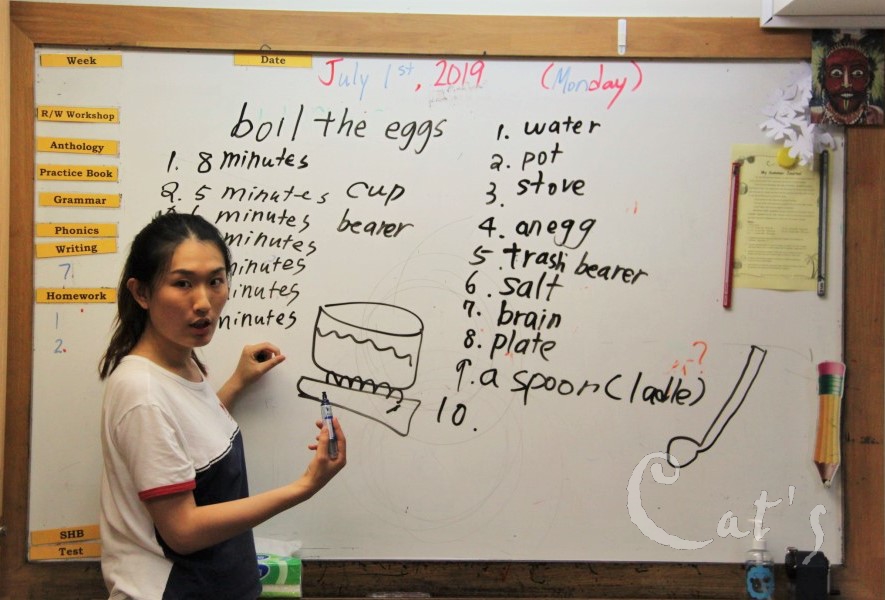 Week
Date
July 1st, 2019 (Monday)
R/W Workshop
Anthology
Practice Book
Grammar
Phonics
Writing
7.
Homework
1
2.
SHB
Test
boil the eggs
1. 8 minutes
2. 5 minutes cup
minutes bearer
minutes
minutes
minutes
minutes
1. water
2. pot
3. stove
4. an egg
5. trash bearer
6. salt
7. brain
8. plate
9. a spoon (ladle) er?
10.
My Summer Journal
Cat's